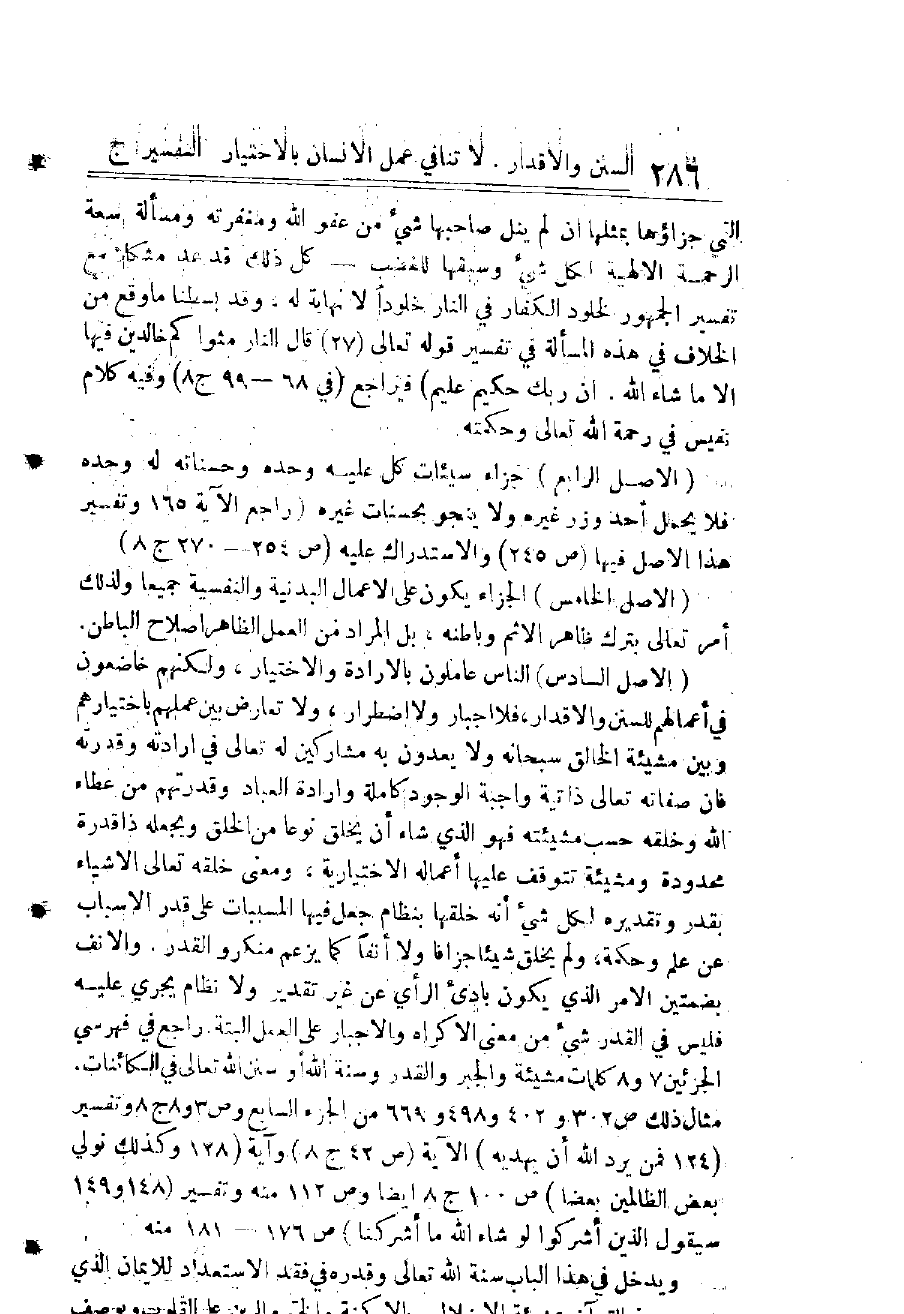 ٢٨٦ السنن والاقدار . لا تنافي عمل الانسان بالاختيار التفسير : ج
التي جزاؤها بمثلها ان لم ينل صاحبها شيء من عفو الله ومغفرته ومسألة سعة
الرحمة الالهية لكل شيء وسبقها للغضب — كل ذلك قد عد مشكلا مع
تفسير الجمهور لخلود الكفار في النار خلوداً لا نهاية له ، وقد بسطنا ما وقع من
الخلاف في هذه المسألة في تفسير قوله تعالى (٢٧) قال النار مثواكم خالدين فيها
الا ما شاء الله . ان ربك حكيم عليم) فيراجع (في ٦٨ — ٩٩ ج٨) وفيه كلام
نفيس في رحمة الله تعالى وحكمته
( الاصل الرابع ) جزاء سيئات كل عليه وحده وحسناته له وحده
فلا يحمل أحد وزر غيره ولا ينجو بحسنات غيره ( راجع الآية ١٦٥ وتفسير
هذا الاصل فيها (ص ٢٤٥) والاستدراك عليه (ص ٢٥٤ — ٢٧٠ ج ٨)
( الاصل الخامس ) الجزاء يكون على الاعمال البدنية والنفسية جميعا ولذلك
أمر تعالى بترك ظاهر الاثم وباطنه ، بل المراد من العمل الظاهر اصلاح الباطن.
( الاصل السادس) الناس عاملون بالارادة والاختيار ، ولكنهم خاضعون
في أعمالهم للسنن والاقدار، فلا اجبار ولا اضطرار ، ولا تعارض بين عملهم باختيارهم
وبين مشيئة الخالق سبحانه ولا يعدون به مشاركين له تعالى في ارادته وقدرته
فان صفاته تعالى ذاتية واجبة الوجود كاملة وارادة العباد وقدرتهم من عطاء
الله وخلقه حسب مشيئته فهو الذي شاء أن يخلق نوعا من الخلق ويجعله ذا قدرة
محدودة ومشيئة تتوقف عليها أعماله الاختيارية ، ومعنى خلقه تعالى الاشياء
بقدر وتقديره لكل شيء أنه خلقها بنظام جعل فيها المسببات على قدر الاسباب
عن علم وحكمة، ولم يخلق شيئا جزافا ولا أنفاً كما يزعم منكرو القدر . والانف
بضمتين الامر الذي يكون بادئ الرأي عن غير تقدير ولا نظام يجري عليه
فليس في القدر شيء من معنى الاكراه والاجبار على العمل البتة. راجع في فهرسي
الجزئين ٧ و٨ كلمات مشيئة والجبر والقدر وسنة الله أو سنن الله تعالى في الكائنات.
مثال ذلك ص٣٠٢ و ٤٠٢ و٤٩٨ و ٦٦٩ من الجزء السابع وص٣و٨ج٨ وتفسير
(١٢٤ فمن يرد الله أن يهديه ) الآية (ص ٤٢ ج ٨) وآية (١٢٨ وكذلك نولي
بعض الظالمين بعضا ) ص ١٠٠ ج ٨ ايضا وص ١١٢ منه وتفسير (١٤٨و١٤٩
سيقول الذين أشركوا لو شاء الله ما أشركنا ) ص ١٧٦ — ١٨١ منه
ويدخل في هذا الباب سنة الله تعالى وقدره في فقد الاستعداد للايمان الذي